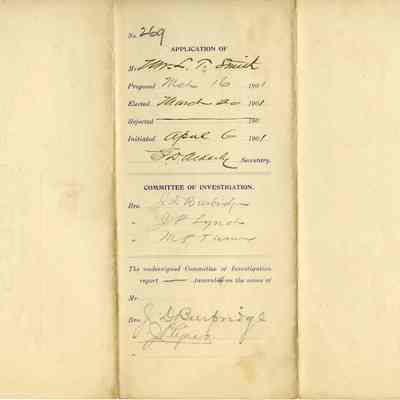 No. 269
APPLICATION OF
Mr L. T. Smith
Proposed Mch 16 1901
Elected March 20 1901
Rejected 190
Initiated April 6 1901
Secretary.
COMMITTEE OF INVESTIGATION.
Bro. J. D. Burbridge
" J P Lynch
"
The undersigned Committee of Investigation
report on the names of
Mr
Bro. J D Burbridge
"